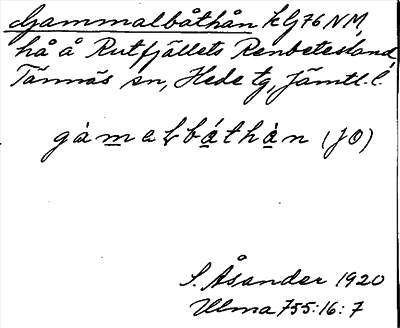 Gammalbåthån kG76 NM,
hå å Rutfjällets Renbetesland,
Tännäs sn, Hede tg, Jämtl. l.
gàmalbáthàn (JO)
S. Åsander 1920
Ulma 755:16:7